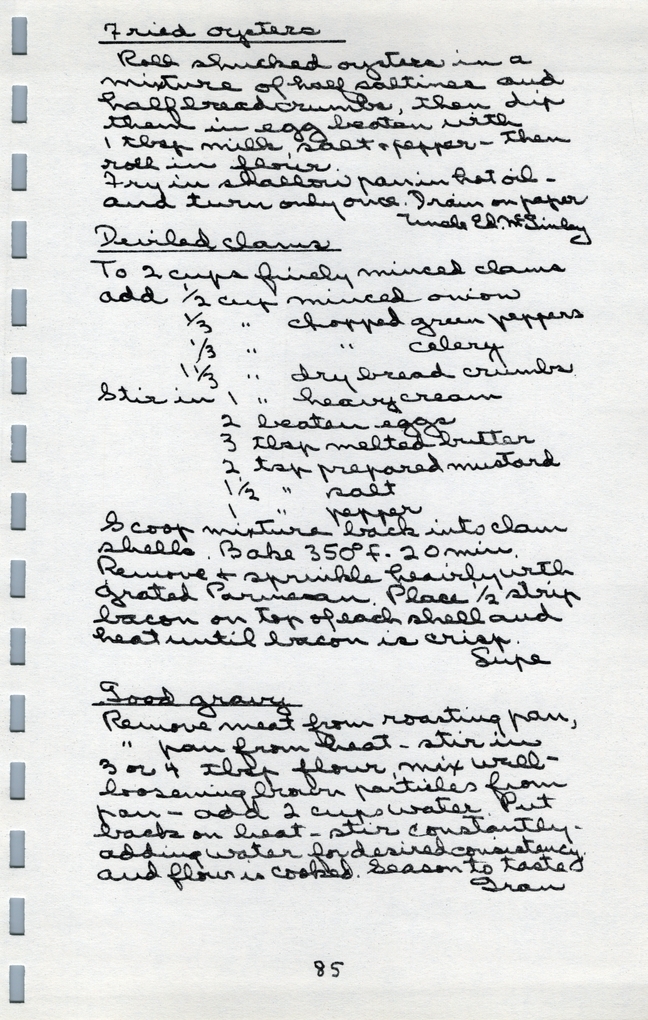 Fried oysters
Roll shucked oysters in a
mixture of half saltines and
half breadcrumbs, then dip
them in egg beaten with
1 tbsp milk, salt + pepper - then
roll in flour.
Fry in shallow pan in hot oil -
and turn only once. Drain on paper
Uncle Ed. McGinley
Deviled clams
To 2 cups finely minced clams
add 1/2 cup minced onion
1/3 " chopped green peppers
1/3 " " celery
1 1/3 " dry bread crumbs
Stir in 1 " heavy cream
2 beaten eggs
3 tbsp melted butter
2 tsp prepared mustard
1 1/2 " salt
1 " pepper
Scoop mixture back into clam
shells. Bake 350° f. 20 min.
Remove + sprinkle heavily with
grated Parmesan. Place 1/2 strip
bacon on top of each shell and
heat until bacon is crisp.
Supe
Good gravy
Remove meat from roasting pan,
" pan from heat - stir in
3 or 4 tbsp flour, mix well -
loosening brown particles from
pan - add 2 cups water. Put
back on heat - stir constantly -
adding water for desired consistency
and flour is cooked. Season to taste
Gran
85